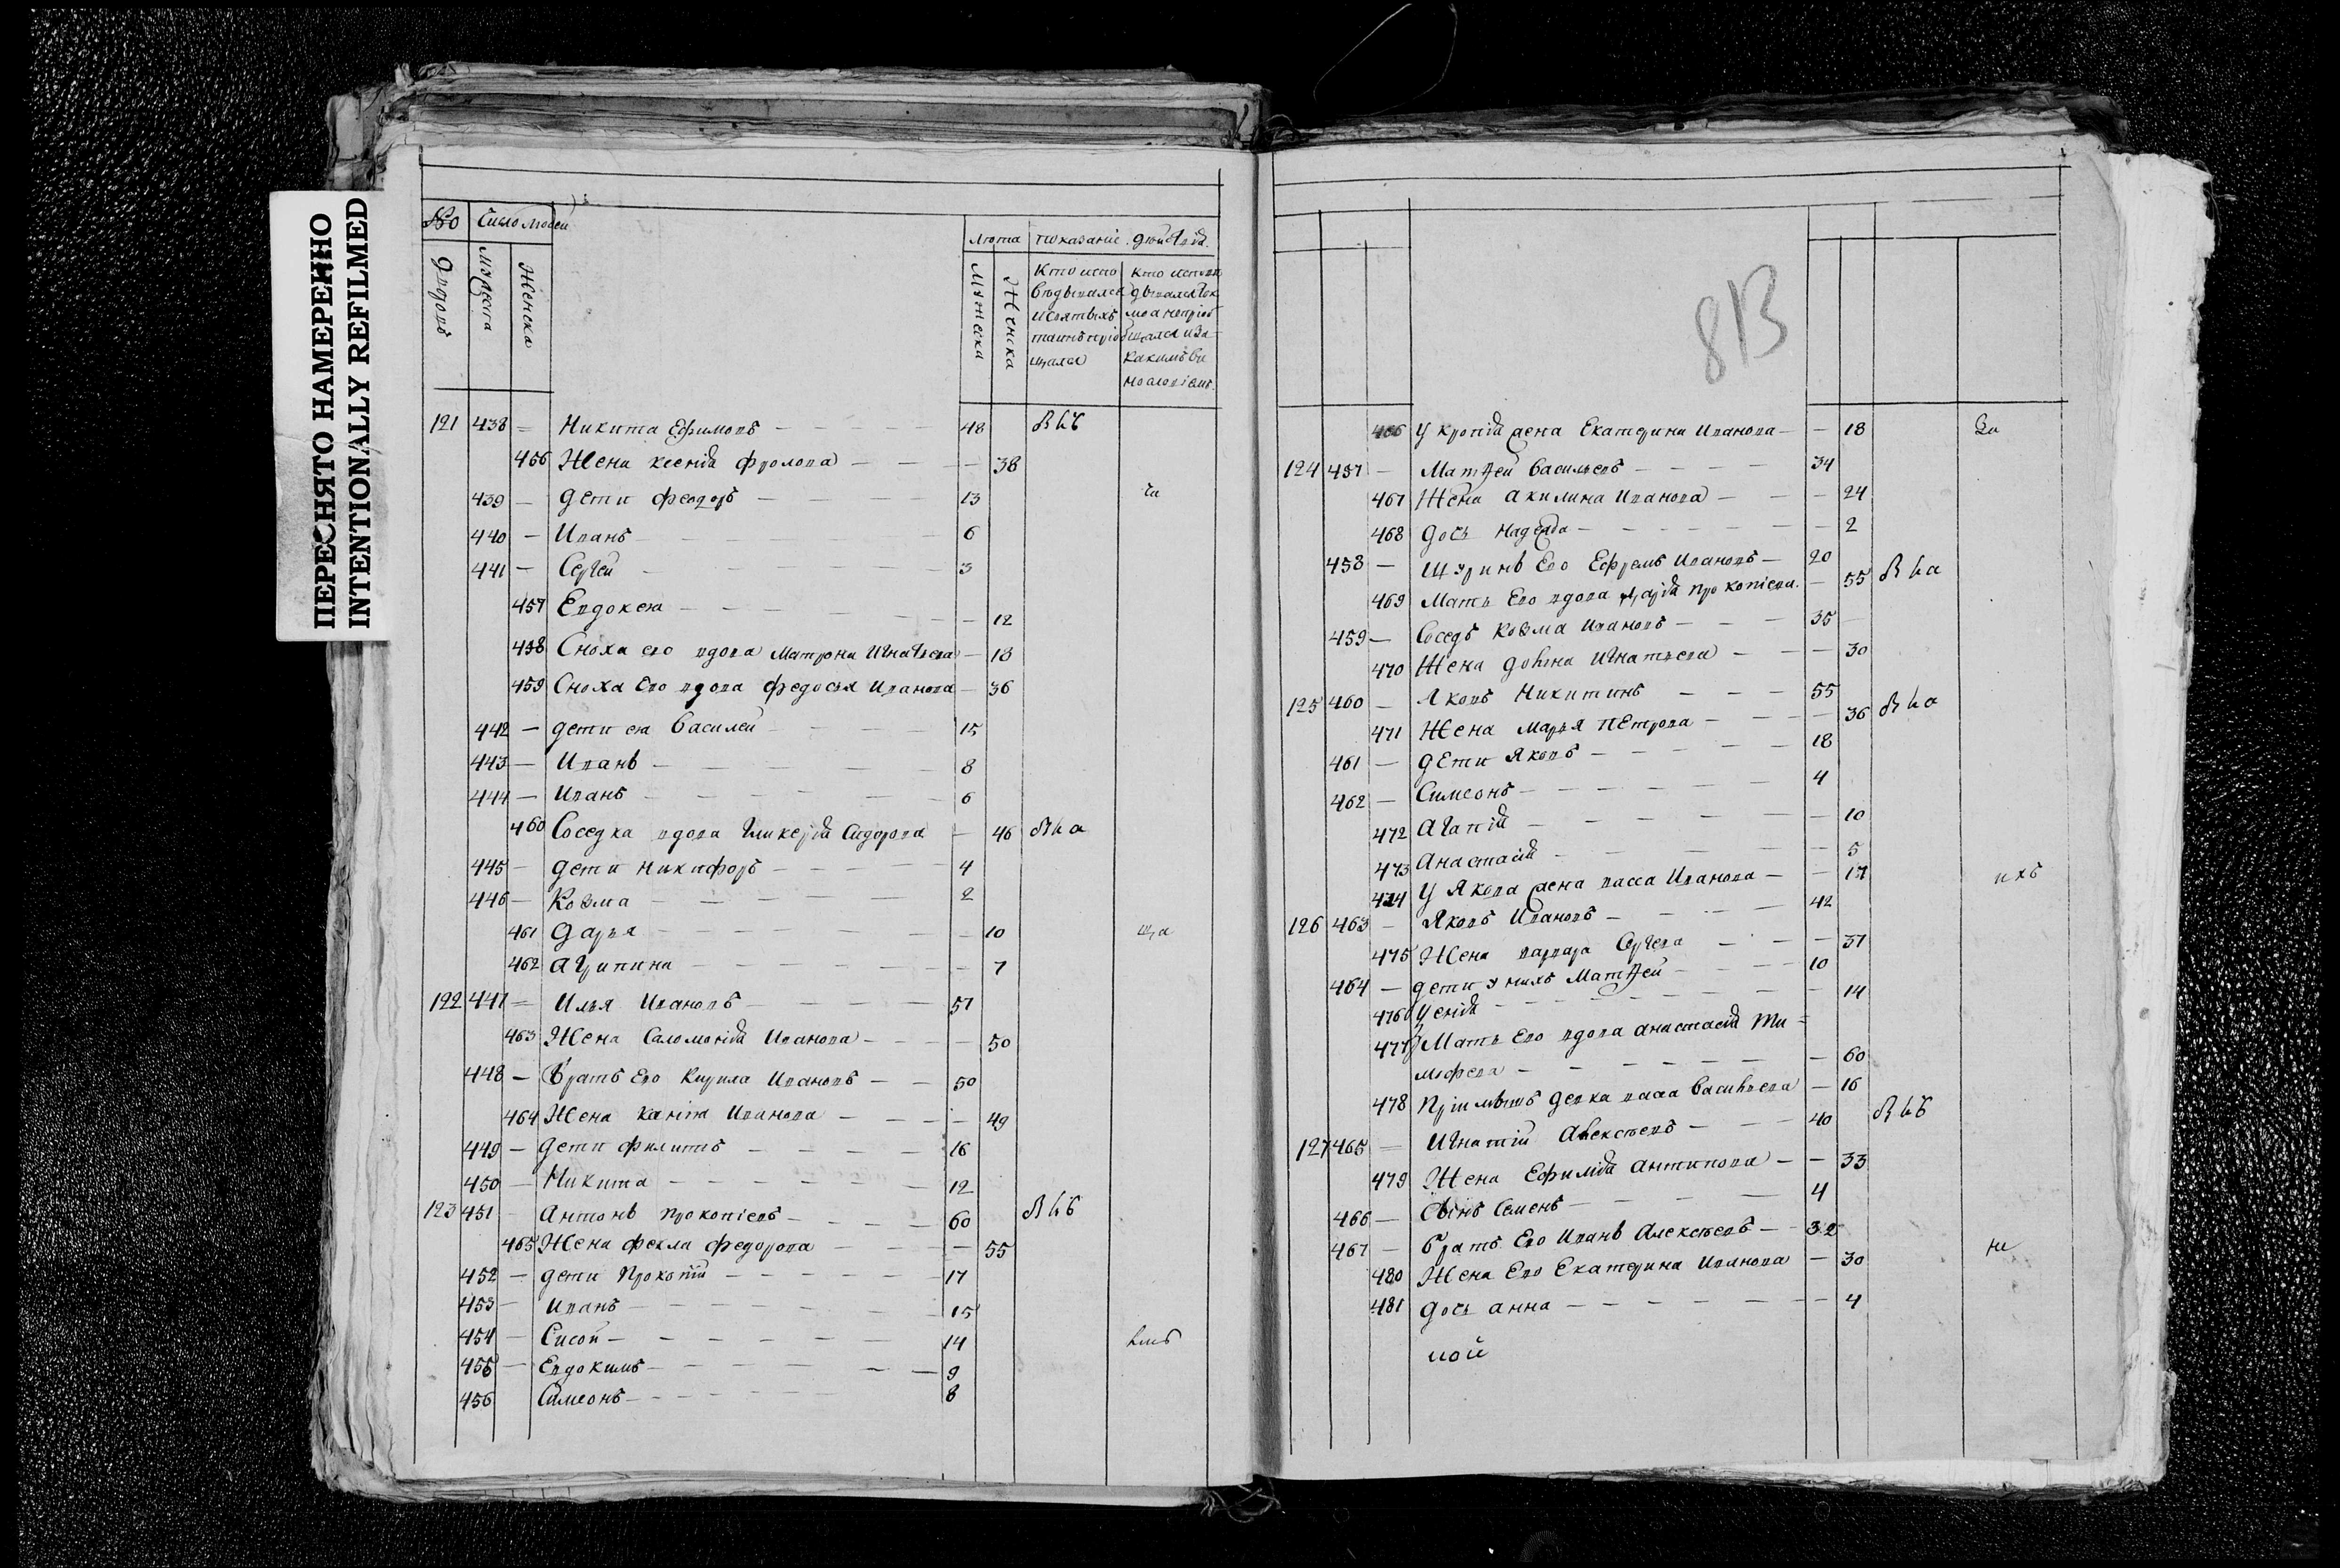 ПЕРЕСНЯТО НАМЕРЕННО
INTENTIONALLY REFILMED
№ Число людей
дворовъ Мужеска Женска
Лѣта показаніе действія
Мужеска Женска
Кто испо кто испове
ведывался дывался ток
и святыхъ мо а непріоб
таинъ пріоб щался и за
щался какимъ ви
нословіемъ
121 438 — Никита Ефимовъ — 48
456 Жена Ксенія Фролова — 38
439 — дети Феодоръ — 13
440 — Иванъ — 6
441 — Сергей — 3
457 Евдокея — 12
458 Сноха ево вдова Матрона Игнатьева — 18
459 Сноха Ево вдова Федосья Иванова — 36
442 — дети ея Василей — 15
443 — Иванъ — 8
444 — Иванъ — 6
460 Соседка вдова Гликерія Сидорова — 46
445 — дети Никифоръ — 4
446 — Козма — 2
461 Дарья — 10 ща
462 Агрипина — 7
122 447 — Илья Ивановъ — 57
463 Жена Саломонія Иванова — 50
448 — Братъ Ево Кирила Ивановъ — 50
464 Жена Иванова — 49
449 — дети Филипъ — 16
450 — Никита — 12
123 451 Антонъ Прокопіевъ — 60
465 Жена Фекла Федорова — 55
452 — дети Прокопій — 17
453 — Иванъ — 15
454 — Сисой — 14
455 — Евдокимъ — 9
456 Симеонъ — 8
813
466 У жена Екатерина Иванова — 18 за
124 457 — Матѳей Васильевъ — 34
467 Жена Акилина Иванова — 24
468 дочь Надежда — 2
458 — Шуринъ Ево Ефремъ Ивановъ — 20
469 Мать Ево вдова Прокопіева — 55
459 — Соседъ Козма Ивановъ — 35
470 Жена Домна Игнатьева — 30
125 460 — Яковъ Никитинъ — 55
471 Жена Марья Петрова — 36
461 — дети Яковъ — 18
462 — Симеонъ — 4
472 Агапія — 10
473 Анастасія — 5
474 У Якова жена васса Иванова — 17 ихъ
126 463 — Яковъ Ивановъ — 42
475 Жена варвара Сергева — 37
464 — дети у нихъ Матѳей — 10
476 — 14
477 Мать Ево вдова Анастасія Ти=
мофева — 60
478 Пріимышъ девка васса Васильева — 16
127 465 — Игнатій Алексѣевъ — 40
479 Жена Ефимія Антипова — 33
466 — Сынъ Семенъ — 4
467 — братъ Ево Иванъ Алексѣевъ — 32
480 Жена Ево Екатерина Иванова — 30 не
481 дочь Анна — 4
мой